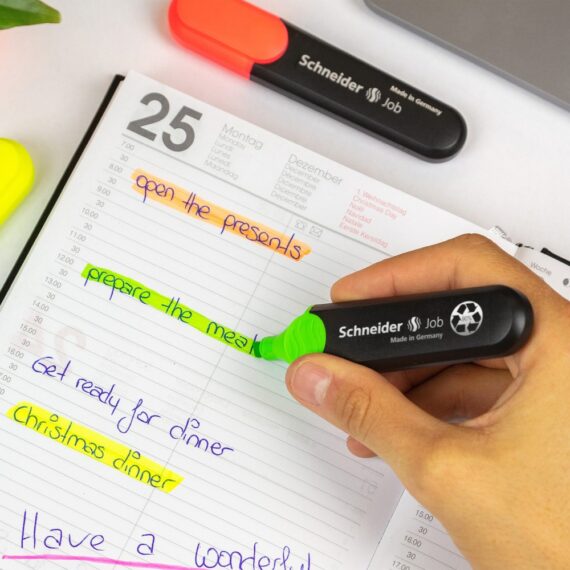 Schneider Job
Made in Germany
25
Montag
Monday
Lundi
Lunes
Maandag
Dezember
December
Décembre
Diciembre
Dicembre
December
1. Weihnachtstag
Christmas Day
Noël
Navidad
Natale
Eerste Kerstdag
Woche
7.00
30
8.00
30
9.00
30
10.00
open the presents
30
11.00
30
12.00
30
13.00
prepare the meal
30
14.00
30
15.00
30
16.00
Get ready for dinner
30
17.00
Christmas dinner
Have a wonderful
Schneider Job
Made in Germany
15.00
30
16.00
30
17.00